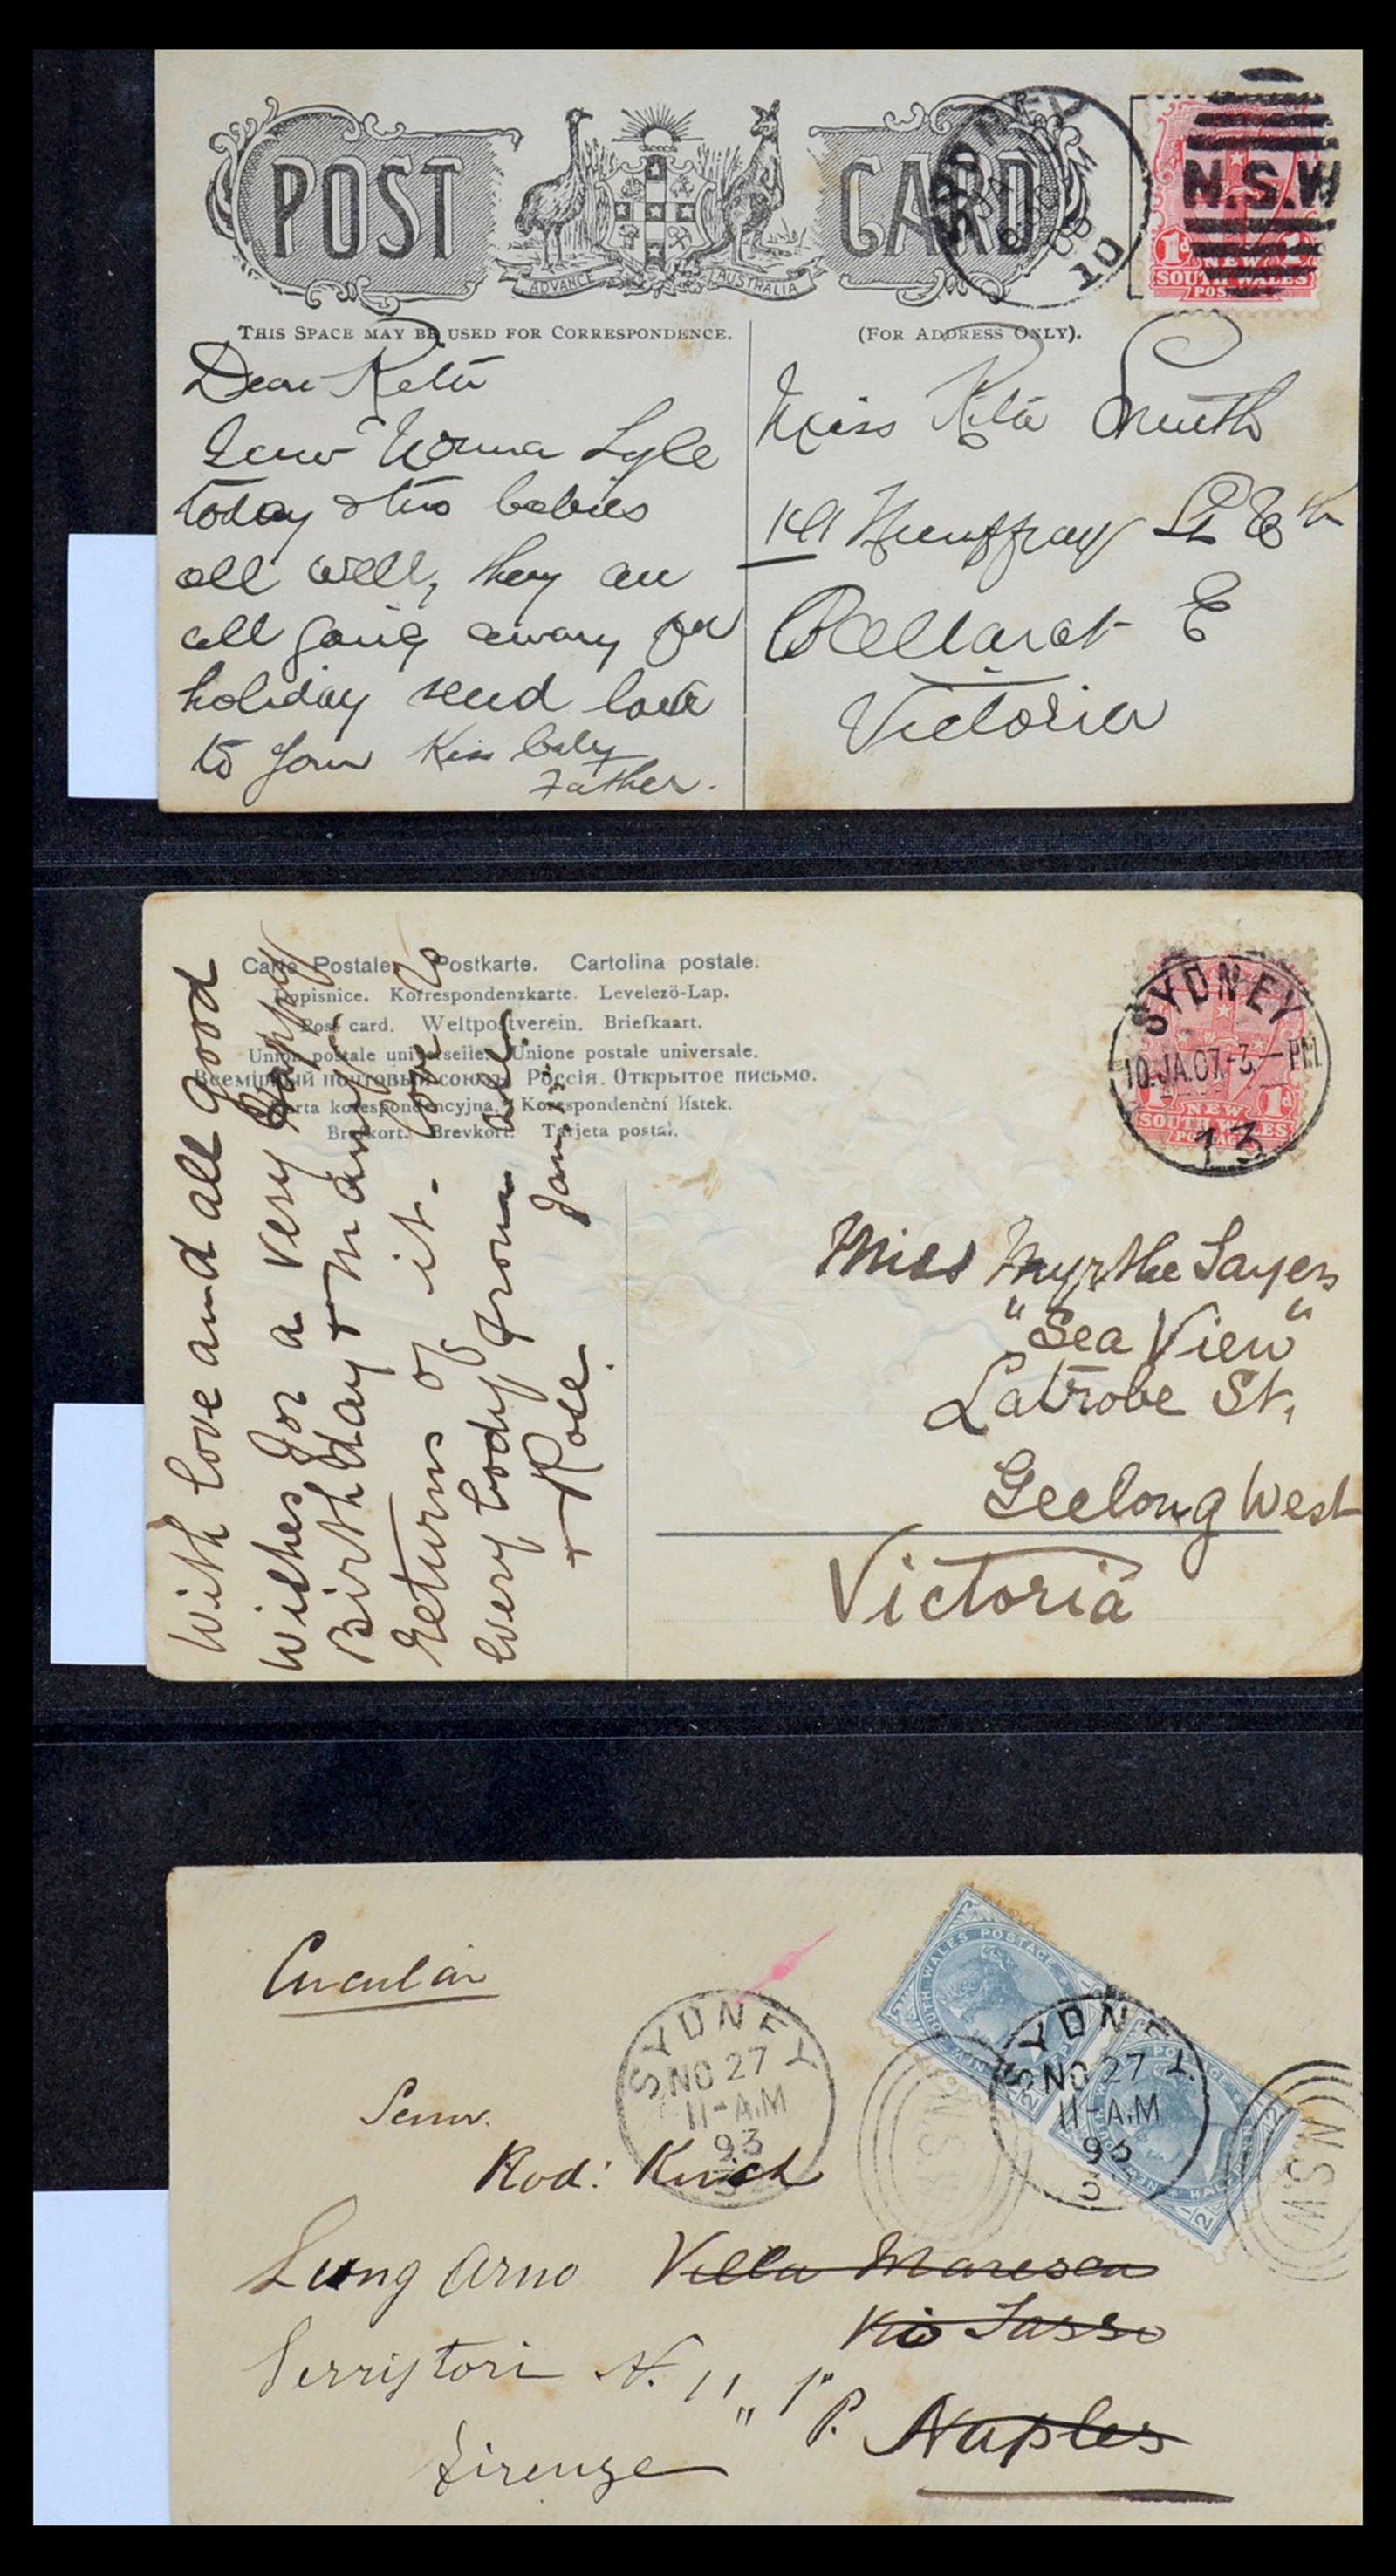 POST CARD
ADVANCE AUSTRALIA
SYDNEY
10
N.S.W
1d NEW 1d
SOUTH WALES
POSTAGE
THIS SPACE MAY BE USED FOR CORRESPONDENCE.
(FOR ADDRESS ONLY).
Dear Rita
Norma Lyle
today & two babies
all well, they are
all going away for
holiday send love
to you Kiss baby
Father.
Miss Rita Smith
Humffray St
Ballarat E
Victoria
Carte Postale. Postkarte. Cartolina postale.
Dopisnice. Korrespondenzkarte. Levelező-Lap.
Post card. Weltpostverein. Briefkaart.
Union postale universelle. Unione postale universale.
Всемірный почтовый союзъ Россія. Открытое письмо.
Karta korespondencyjna. Korespondenční lístek.
Brefkort. Brevkort. Tarjeta postal.
With love and all good
wishes for a very happy
Birthday + many
returns of it. Love to
every body from all.
+ Rose.
SYDNEY
10.JA.07.3-PM
13
1d NEW 1d
SOUTH WALES
POSTAGE
Miss Myrthe Sayers
"Sea View"
Latrobe St,
Geelong West
Victoria
Circular
SYDNEY
NO 27
11-A.M
93
NEW SOUTH WALES POSTAGE
HALFPENNY
SYDNEY
NO 27
11-A.M
93
3
NSW
NSW
Rod:
Lung Arno Villa
Via Tasso
Serristori N. 11 " 1° P.
Naples
Firenze